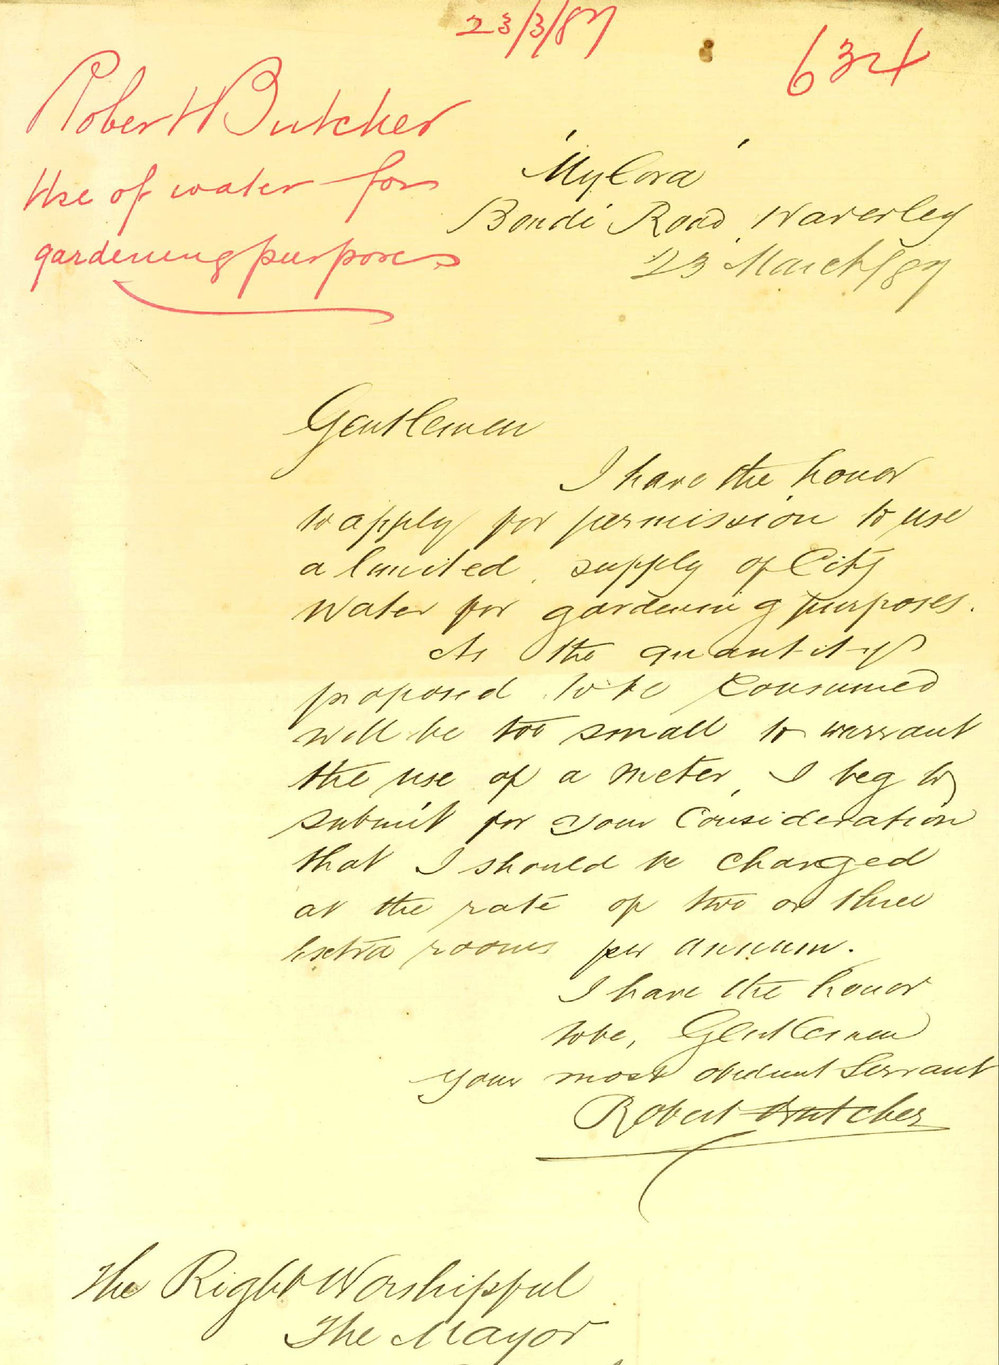 23/3/87
634
Robert Butcher
Use of water for
gardening purposes
'MyCora'
Bondi Road, Waverley
23 March/87
Gentlemen
I have the honor
to apply for permission to use
a limited supply of City
Water for gardening purposes.
As the quantity
proposed to be Consumed
will be too small to warrant
the use of a meter, I beg to
submit for your Consideration
that I should be charged
at the rate of two or three
extra rooms per annum.
I have the honor
to be, Gentlemen
Your most obedient Servant
Robert Butcher
The Right Worshipful
The Mayor